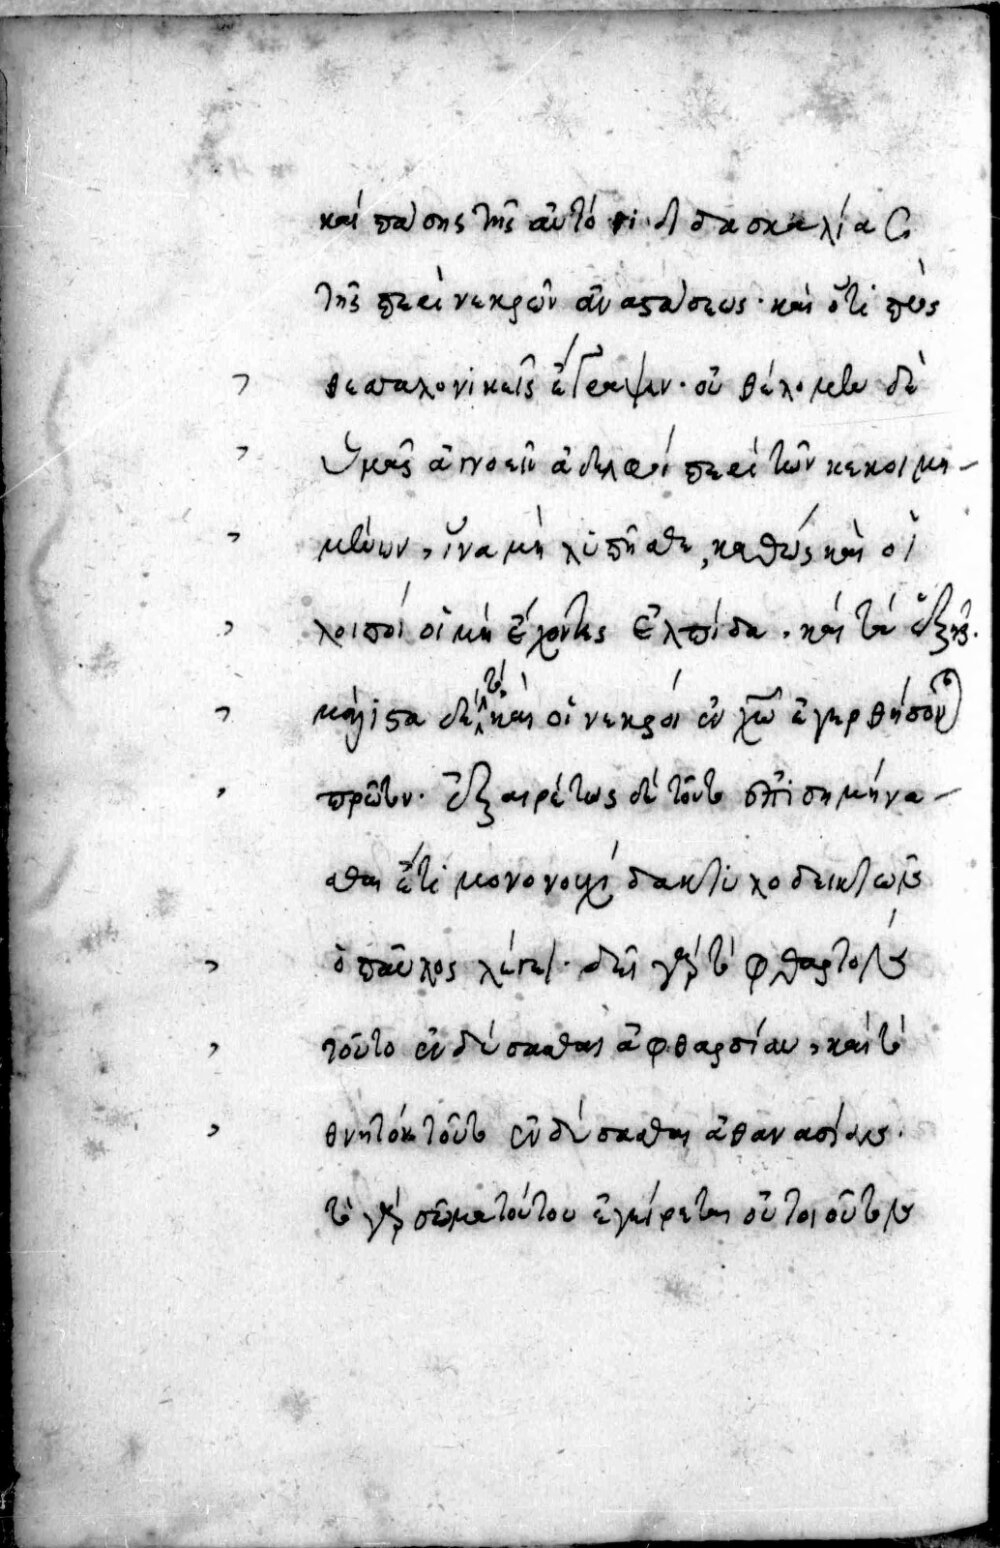 καὶ πάσης τῆς αὐτόθι διδασκαλίας
τῆς περὶ νεκρῶν ἀναστάσεως· καὶ ὅτι πρὸς
θεσσαλονικεῖς ἔγραψεν· οὐ θέλομεν δὲ
ὑμᾶς ἀγνοεῖν ἀδελφοί περὶ τῶν κεκοιμη-
μένων, ἵνα μὴ λυπῆσθε, καθὼς καὶ οἱ
λοιποί οἱ μὴ ἔχοντες ἐλπίδα. καὶ τὰ ἑξῆς.
μάλιστα δὲ τὸ καὶ οἱ νεκροί ἐν χω ἐγερθήσονται
πρῶτον. ἐξαιρέτως δὲ τοῦτο ἐπισημήνα-
σθαι ἔτι μονονουχί δακτυλοδεικτῶν
ὁ παῦλος λέγει· δεῖ γὰρ τὸ φθαρτόν
τοῦτο ἐνδύσασθαι ἀφθαρσίαν, καὶ τὸ
θνητόν τοῦτο ἐνδύσασθαι ἀθανασίαν.
τὸ γὰρ σῶμα τούτου ἐγείρεται οὐ τοιοῦτον